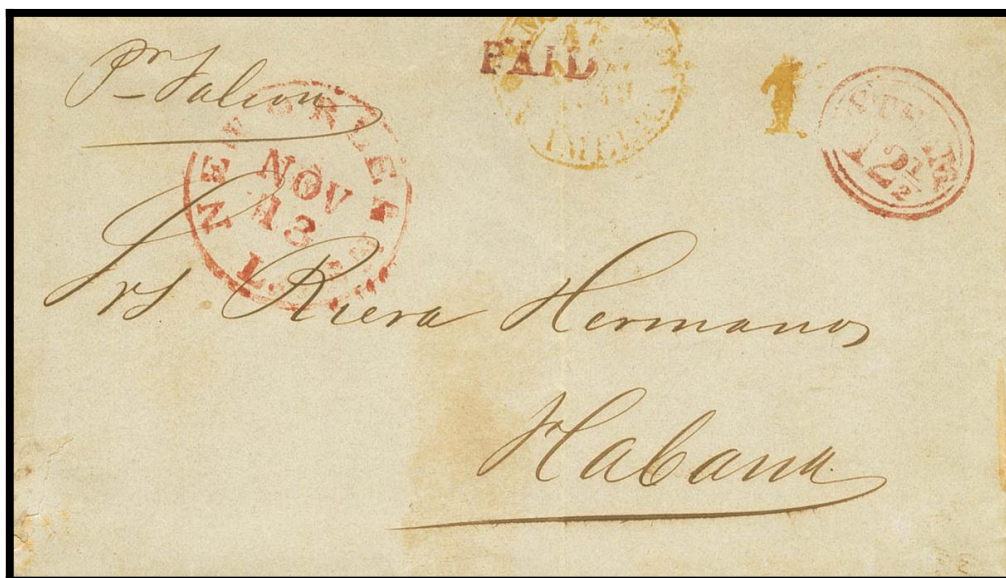 Pr Falcon
PAID
1
STEAM
12½
NEW ORLEANS
NOV
13
La
Srs Riera Hermanos
Habana